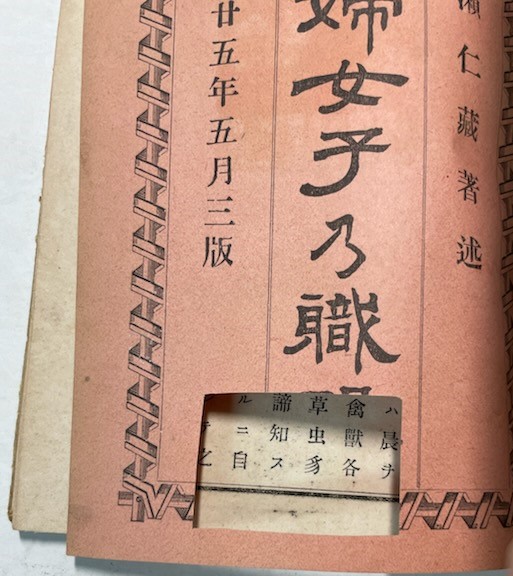 瀬仁藏著述
婦女子乃職
廿五年五月三版
ハ晨ヲ
禽獸各
草虫豸
諦知ス
ルニ自
之